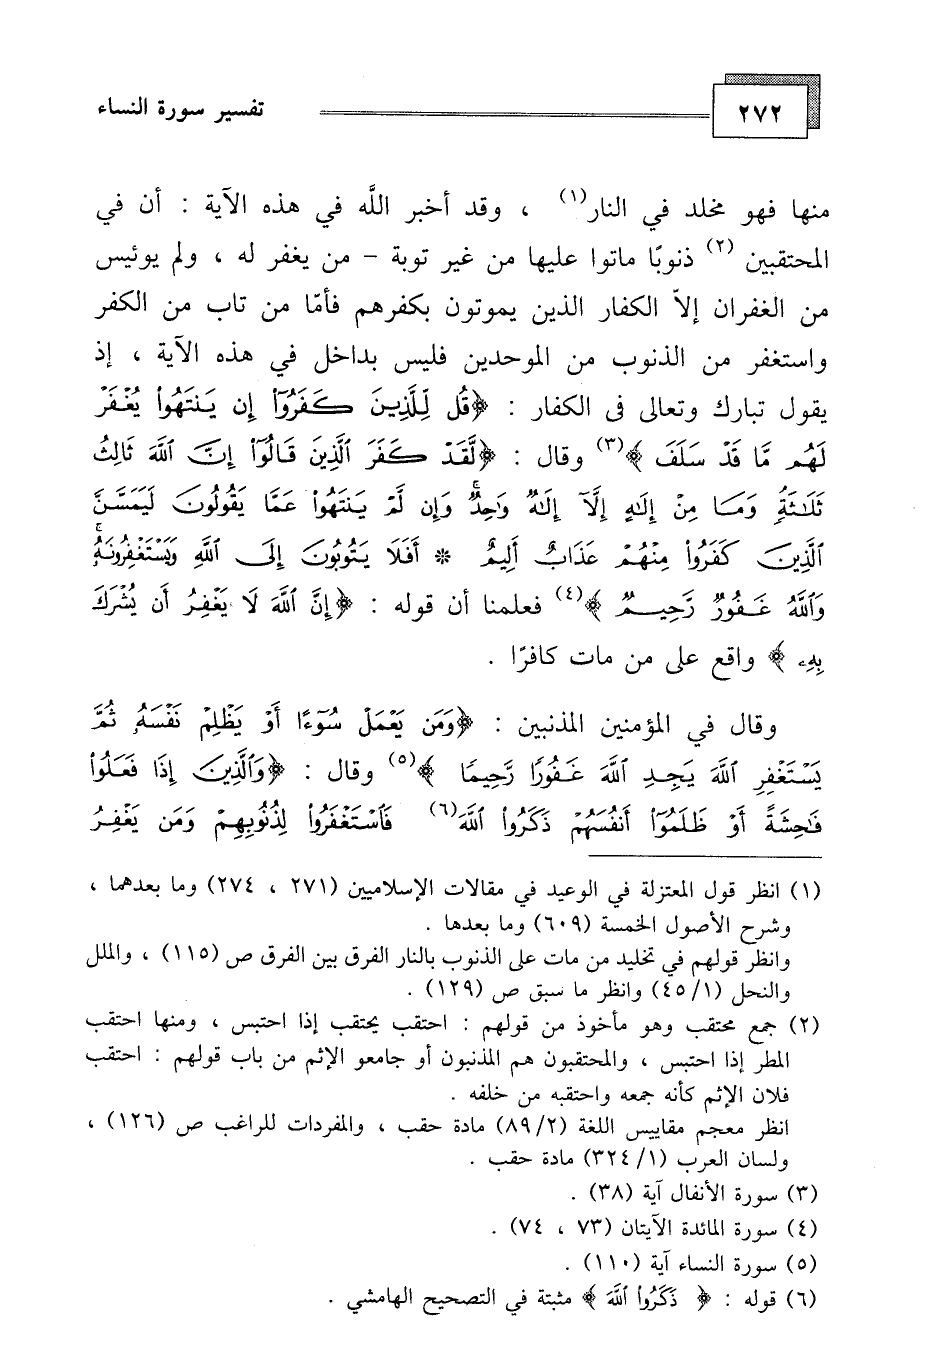 ٢٧٢ تفسير سورة النساء
منها فهو مخلد في النار(١) ، وقد أخبر اللَّه في هذه الآية : أن في
المحتقبين (٢) ذنوبًا ماتوا عليها من غير توبة - من يغفر له ، ولم يوئيس
من الغفران إلاّ الكفار الذين يموتون بكفرهم فأمّا من تاب من الكفر
واستغفر من الذنوب من الموحدين فليس بداخل في هذه الآية ، إذ
يقول تبارك وتعالى فى الكفار : ﴿قُل لِّلَّذِينَ كَفَرُوٓاْ إِن يَنتَهُواْ يُغْفَرْ
لَهُم مَّا قَدْ سَلَفَ ﴾(٣) وقال : ﴿لَّقَدْ كَفَرَ ٱلَّذِينَ قَالُوٓاْ إِنَّ ٱللَّهَ ثَالِثُ
ثَلَـٰثَةٍ وَمَا مِنْ إِلَـٰهٍ إِلَّآ إِلَـٰهٌ وَٰحِدٌ ۚ وَإِن لَّمْ يَنتَهُواْ عَمَّا يَقُولُونَ لَيَمَسَّنَّ
ٱلَّذِينَ كَفَرُواْ مِنْهُمْ عَذَابٌ أَلِيمٌ * أَفَلَا يَتُوبُونَ إِلَى ٱللَّهِ وَيَسْتَغْفِرُونَهُۥ ۚ
وَٱللَّهُ غَفُورٌ رَّحِيمٌ ﴾(٤) فعلمنا أن قوله : ﴿إِنَّ ٱللَّهَ لَا يَغْفِرُ أَن يُشْرَكَ
بِهِۦ ﴾ واقع على من مات كافرًا .
وقال في المؤمنين المذنبين : ﴿وَمَن يَعْمَلْ سُوٓءًا أَوْ يَظْلِمْ نَفْسَهُۥ ثُمَّ
يَسْتَغْفِرِ ٱللَّهَ يَجِدِ ٱللَّهَ غَفُورًا رَّحِيمًا ﴾(٥) وقال : ﴿وَٱلَّذِينَ إِذَا فَعَلُواْ
فَـٰحِشَةً أَوْ ظَلَمُوٓاْ أَنفُسَهُمْ ذَكَرُواْ ٱللَّهَ(٦) فَٱسْتَغْفَرُواْ لِذُنُوبِهِمْ وَمَن يَغْفِرُ
(١) انظر قول المعتزلة في الوعيد في مقالات الإسلاميين (٢٧١ ، ٢٧٤) وما بعدهما ،
وشرح الأصول الخمسة (٦٠٩) وما بعدها .
وانظر قولهم في تخليد من مات على الذنوب بالنار الفرق بين الفرق ص (١١٥) ، والملل
والنحل (٤٥/١) وانظر ما سبق ص (١٢٩) .
(٢) جمع محتقب وهو مأخوذ من قولهم : احتقب يحتقب إذا احتبس ، ومنها احتقب
المطر إذا احتبس ، والمحتقبون هم المذنبون أو جامعو الإثم من باب قولهم : احتقب
فلان الإثم كأنه جمعه واحتقبه من خلفه .
انظر معجم مقاييس اللغة (٨٩/٢) مادة حقب ، والمفردات للراغب ص (١٢٦) ،
ولسان العرب (٣٢٤/١) مادة حقب .
(٣) سورة الأنفال آية (٣٨) .
(٤) سورة المائدة الآيتان (٧٣ ، ٧٤) .
(٥) سورة النساء آية (١١٠) .
(٦) قوله : ﴿ ذَكَرُواْ ٱللَّهَ ﴾ مثبتة في التصحيح الهامشي .